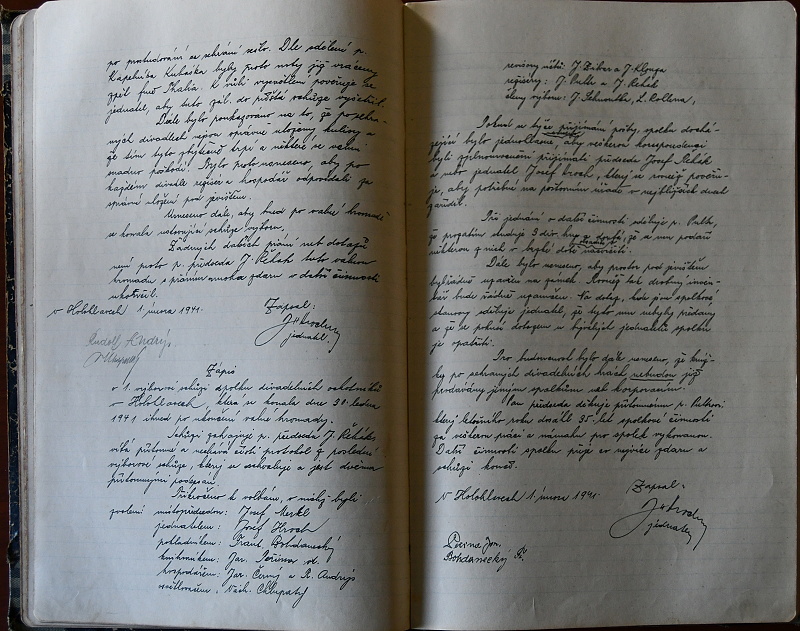 po prostudování se schrání sešlo. Dle sdělení p.
Kapelníka Kuhaška byly proto noty již vráceny
zpět fmě Thalia. K věci vysvětlení pověřuje se
jednatel, aby tuto zál. do příště schůze vyšetřil.
Dále bylo poukazováno na to, že po zehra-
ných divadlech nejsou správně uloženy kulisy a
že tím bylo zbytečně trpí a některé se velmi
snadno poškodí. Bylo proto usneseno, aby po
každém divadle režisér a hospodář odpovídali za
správné uložení pod jevištěm.
Usneseno dále, aby hned po valné hromadě
se konala ustavující schůze výboru.
Žádných dalších přání neb dotazů
není proto p. předseda J. Řehák tuto valnou
hromadu s přáním mnoha zdaru v další činnosti
ukončil.
v Holohlavech 1. února 1941.
Zapsal:
JHroch
jednatel.
Rudolf Andrýs
Zápis
o 1. výborové schůzi spolku divadelních ochotníků
v Holohlavech, která se konala dne 30. ledna
1941 ihned po ukončení valné hromady.
Schůzi zahajuje p. předseda J. Řehák,
vítá přítomné a nechává čísti protokol z poslední
výborové schůze, který se schvaluje a jest dvěma
přítomnými podepsán.
Přikročeno k volbám, v nichž byli
zvoleni místopředsedou: Josef Merkl
jednatelem: Josef Hroch
pokladníkem: Frant. Bohdanecký
knihovníkem: Jar. Peřina st.
hospodářem: Jar. Černý a R. Andrýs
osvětlovačem: Vách. Chlupatý
revisory účtů: J. Biber a J. Klouza
režiséry: J. Pultr a J. Řehák
členy výboru: J. Schwalb, L. Kollera,
Pokud se týče přijímání pošty, spolku dochá-
zející bylo jednotlivně, aby veškerou korespondenci
byli zplnomocněni přijímati předseda Josef Řehák
a nebo jednatel Josef Hroch, který se rovněž pověřu-
je, aby potřebné na poštovním úřadě v nejbližších dnech
zařídil.
Při jednání o další činnosti sděluje p. Pultr,
že prozatím studuje 3 div. hry a doufá, že se mu podaří
některou z nich v brzké době nacvičiti.
Dále bylo usneseno, aby prostor pod jevištěm
byl řádně uzavřen na zámek. Rovněž tak drobný inven-
tář bude řádně uzamčen. Na dotaz, kde jsou spolkové
stanovy sděluje jednatel, že tyto mu nebyly předány
a že se pokusí dotazem u bývalých jednatelů spolku
je opatřiti.
Pro budoucnost bylo dále usneseno, že kníž-
ky po sehraných divadelních hrách nebudou již
prodávány jiným spolkům neb korporacím.
Pan předseda děkuje přítomnému p. Pultrovi
který letošního roku dosáhl 35. let spolkové činnosti
za veškerou práci a námahu pro spolek vykonanou.
Další činnosti spolku přeje co nejvíce zdaru a
schůzi končí.
v Holohlavech 1. února 1941.
Zapsal:
JHroch
jednatel
Peřina Jar.
Bohdanecký Fr.